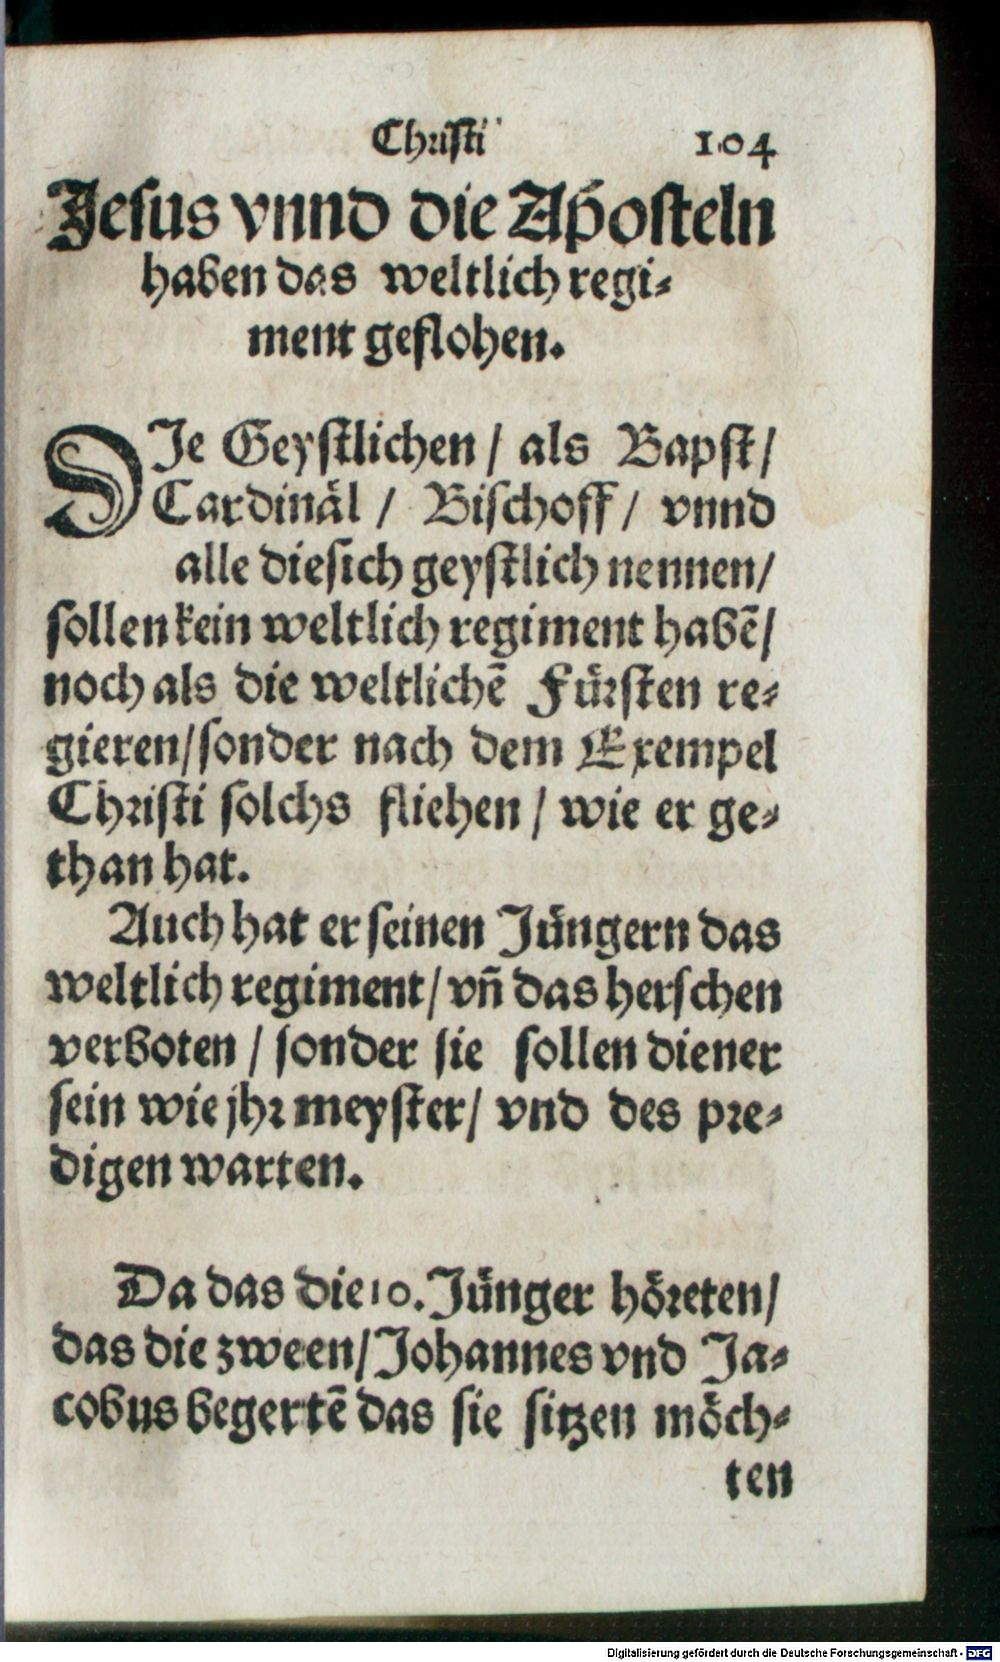 Christi 104
Jesus vnnd die Aposteln
haben das weltlich regi⸗
ment geflohen.
DIe Geystlichen / als Bapst /
Cardinäl / Bischoff / vnnd
alle diesich geystlich nennen /
sollen kein weltlich regiment habẽ /
noch als die weltlichẽ Fürsten re⸗
gieren / sonder nach dem Exempel
Christi solchs fliehen / wie er ge⸗
than hat.
Auch hat er seinen Jüngern das
weltlich regiment / vñ das herschen
verboten / sonder sie sollen diener
sein wie jhr meyster / vnd des pre⸗
digen warten.
Da das die 10. Jünger höreten /
das die zween / Johannes vnd Ja⸗
cobus begertẽ das sie sitzen möch⸗
ten
Digitalisierung gefördert durch die Deutsche Forschungsgemeinschaft - DFG